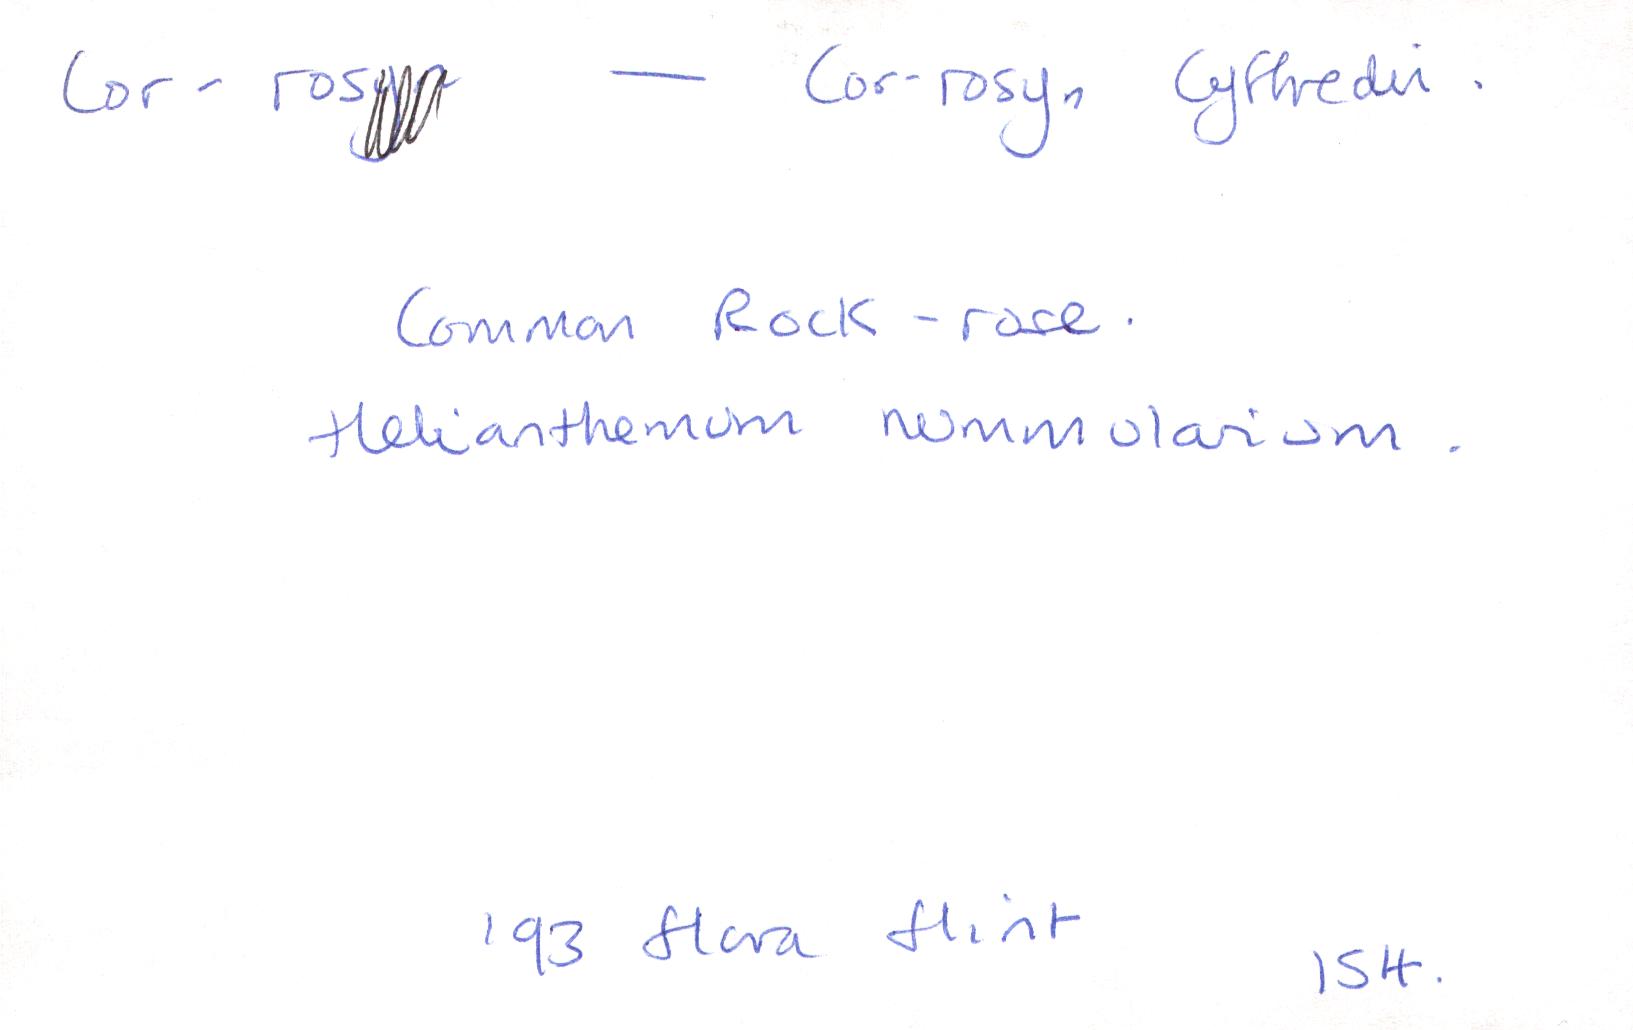 Cor-ros — Cor-rosyn Cyffredin.
Common Rock-rose.
Helianthemum nummularium.
'93 flora flint
154.